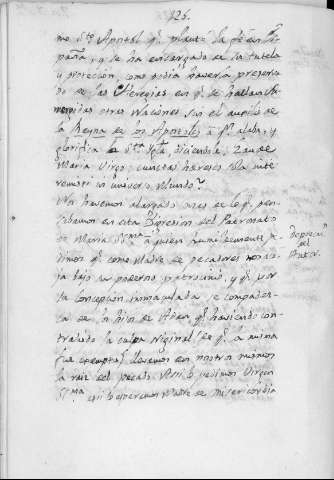 126.
mo Sto Apostol q. plantó la fé en Es-
paña, y q. se ha encargado de su tutela
y proteccion, como podia haverla preserva-
do de las Heregias en q. se hallan su-
mergidas otras Naciones, sin el auxilio de
la Reyna de los Apostoles à qn. alaba, y
glorifica la Sta Ygla. diciendola, Gaude
Maria Virgo, cunctas hereses sola inte-
remisti in universo Mundo?
Nos havemos alargado mas de lo q. pen-
sabamos en esta Digresion del Patronato
de Maria SSma. à quien humildemente pe-
dimos q. como Madre de pecadores nos aco-
ja bajo su poderoso patrocinio, y q. por
su Concepcion inmaculada se compadez-
ca de los hijos de Adan q. haviendo con-
trahido la culpa original (de q. la misma
fue exempta) llevamos en nosotros mismos
la raiz del pecado. Assi lo pedimos Virgen
SSma. assi lo esperamos Madre de misericordia
Deprecacn.
del
Autor.